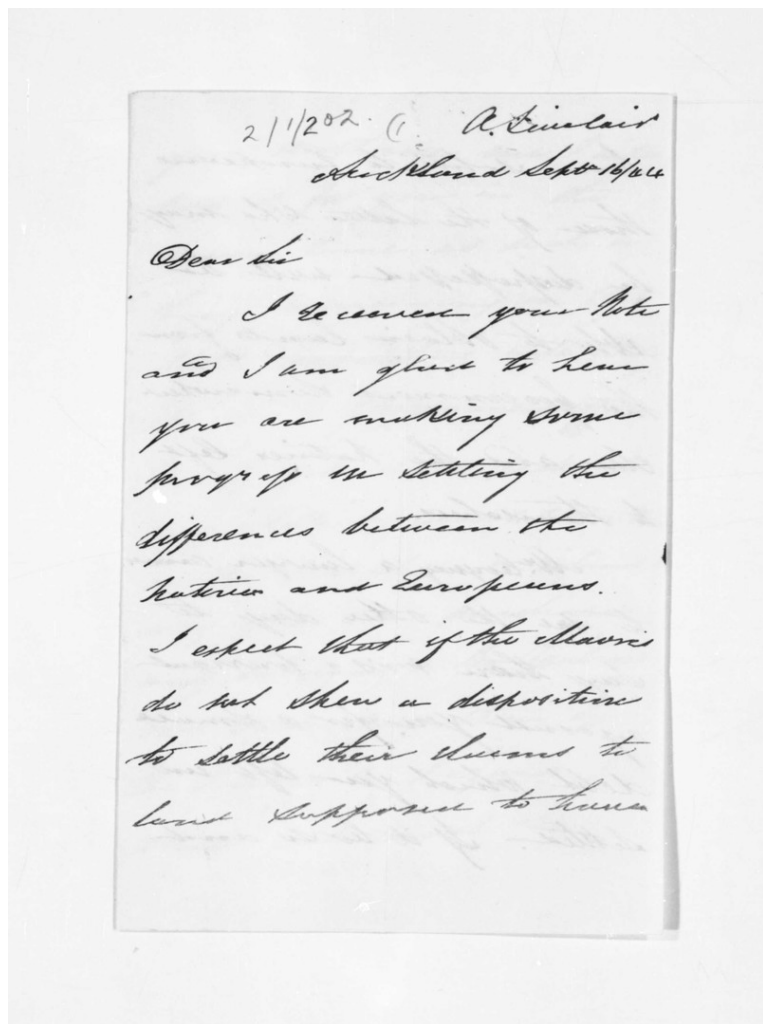 2/1/202. (1.
A. Sinclair
Auckland Septr 16/44
Dear Sir
I received your Note
and I am glad to hear
you are making some
progress in settling the
differences between the
natives and Europeans.
I expect that if the Maoris
do not shew a disposition
to settle their claims to
land supposed to have